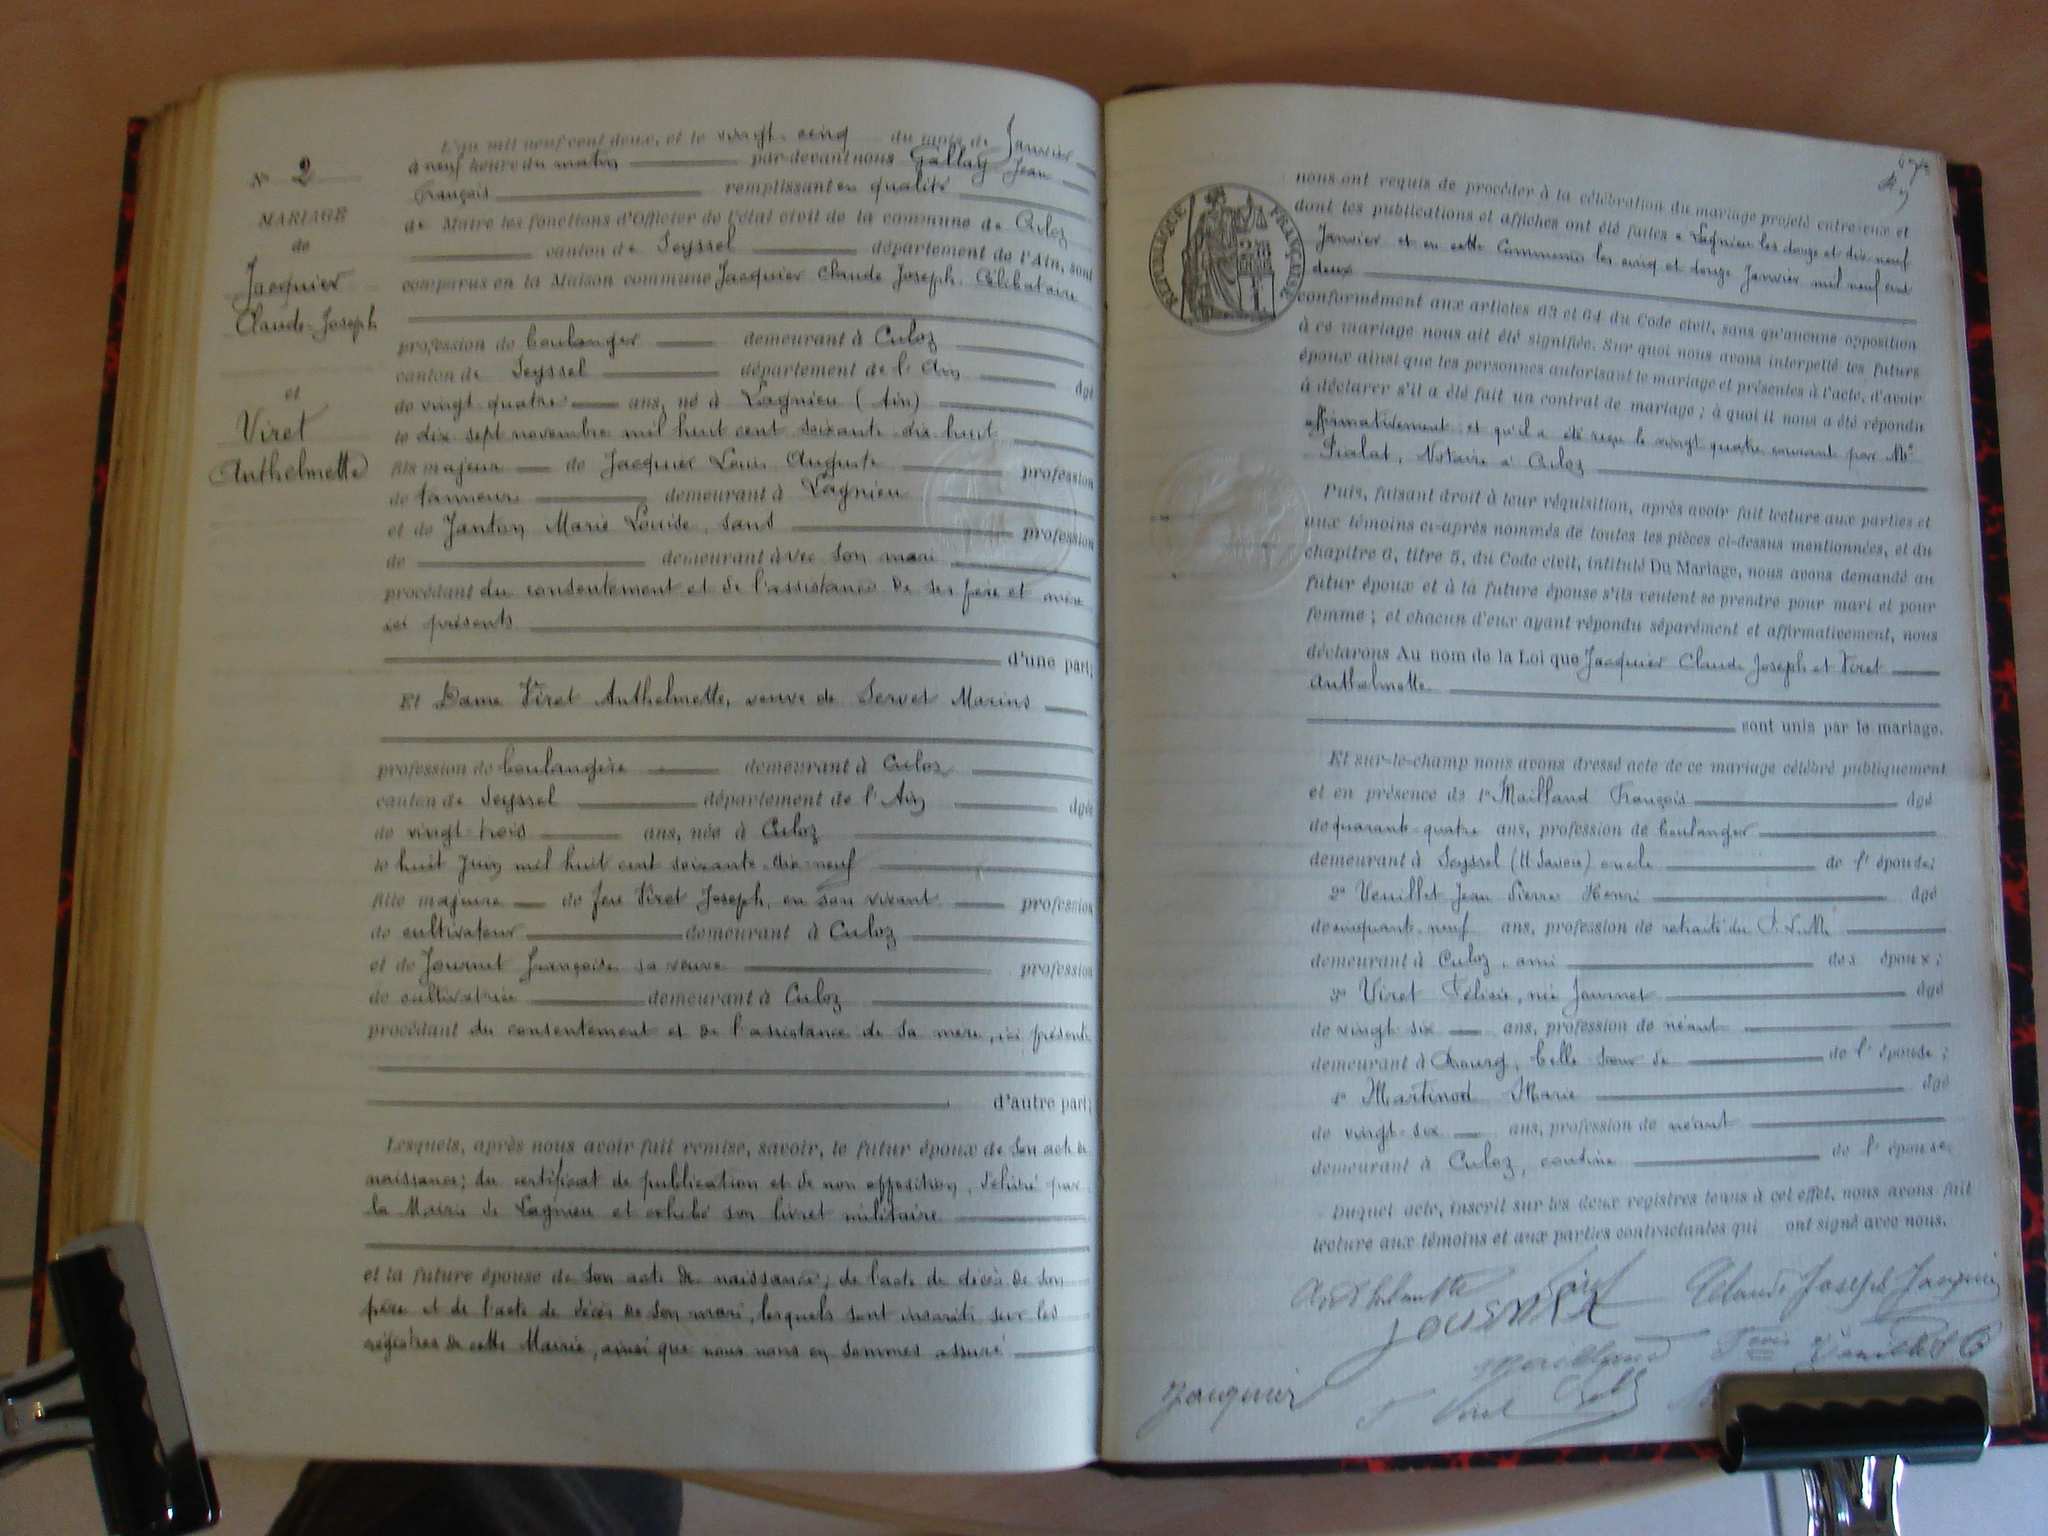 L'an mil neuf cent deux, et le vingt-cinq du mois de Janvier
à neuf heure du matin par devant nous Gallay Jean
François remplissant en qualité
de Maire les fonctions d'Officier de l'état civil de la commune de Culoz
canton de Seyssel département de l'Ain, sont
comparus en la Maison commune Jacquier Claude Joseph. Célibataire
profession de boulanger demeurant à Culoz
canton de Seyssel département de l'Ain âgé
de vingt quatre ans, né à Lagnieu (Ain)
le dix sept novembre mil huit cent soixante dix huit
fils majeur de Jacquier Louis Auguste profession
de tanneur demeurant à Lagnieu
et de Janton Marie Louise, sans profession
de demeurant avec son mari
procédant du consentement et de l'assistance de ses père et mère
ici présents
d'une part;
Et Dame Viret Anthelmette, veuve de Servet Marius
profession de boulangère demeurant à Culoz
canton de Seyssel département de l'Ain âgée
de vingt-trois ans, née à Culoz
le huit Juin mil huit cent soixante-dix-neuf
fille majeure de feu Viret Joseph, en son vivant profession
de cultivateur demeurant à Culoz
et de Journet Françoise sa veuve profession
de cultivatrice demeurant à Culoz
procédant du consentement et de l'assistance de sa mère, ici présente
d'autre part;
Lesquels, après nous avoir fait remise, savoir, le futur époux de son acte de
naissance; du certificat de publication et de non opposition, délivré par
la Mairie de Lagnieu et exhibé son livret militaire
et la future épouse de son acte de naissance; de l'acte de décès de son
père et de l'acte de décès de son mari, lesquels sont inscrits sur les
registres de cette Mairie, ainsi que nous nous en sommes assuré
N° 2
MARIAGE
de
Jacquier
Claude-Joseph
et
Viret
Anthelmette
RÉPUBLIQUE FRANÇAISE
nous ont requis de procéder à la célébration du mariage projeté entre eux et
dont les publications et affiches ont été faites à Lagnieu les douze et dix-neuf
Janvier et en cette Commune les cinq et douze Janvier mil neuf cent
deux
conformément aux articles 63 et 64 du Code civil, sans qu'aucune opposition
à ce mariage nous ait été signifiée. Sur quoi nous avons interpellé les futurs
époux ainsi que les personnes autorisant le mariage et présentes à l'acte, d'avoir
à déclarer s'il a été fait un contrat de mariage; à quoi il nous a été répondu
affirmativement et qu'il a été reçu le vingt quatre courant par Me
Pialat, Notaire à Culoz
Puis, faisant droit à leur réquisition, après avoir fait lecture aux parties et
aux témoins ci-après nommés de toutes les pièces ci-dessus mentionnées, et du
chapitre 6, titre 5, du Code civil, intitulé Du Mariage, nous avons demandé au
futur époux et à la future épouse s'ils veulent se prendre pour mari et pour
femme; et chacun d'eux ayant répondu séparément et affirmativement, nous
déclarons Au nom de la Loi que Jacquier Claude Joseph et Viret
Anthelmette
sont unis par le mariage.
Et sur-le-champ nous avons dressé acte de ce mariage célébré publiquement
et en présence de 1° Mailland François âgé
de quarante-quatre ans, profession de boulanger
demeurant à Seyssel (H Savoie) oncle de l'épouse;
2° Venillet Jean Pierre Henri âgé
de cinquante-neuf ans, profession de retraité du P.L.M.
demeurant à Culoz, ami des époux;
3° Viret Félisie, née Journet âgé
de vingt six ans, profession de néant
demeurant à belle sœur de de l'épouse;
4° Martinod Marie âgé
de vingt-six ans, profession de néant
demeurant à Culoz, cousine de l'épouse
Duquel acte, inscrit sur les deux registres tenus à cet effet, nous avons fait
lecture aux témoins et aux parties contractantes qui ont signé avec nous.
Anthelmette Viret Claude Joseph Jacquier
JOURNET
Mailland
Jacquier F Viret